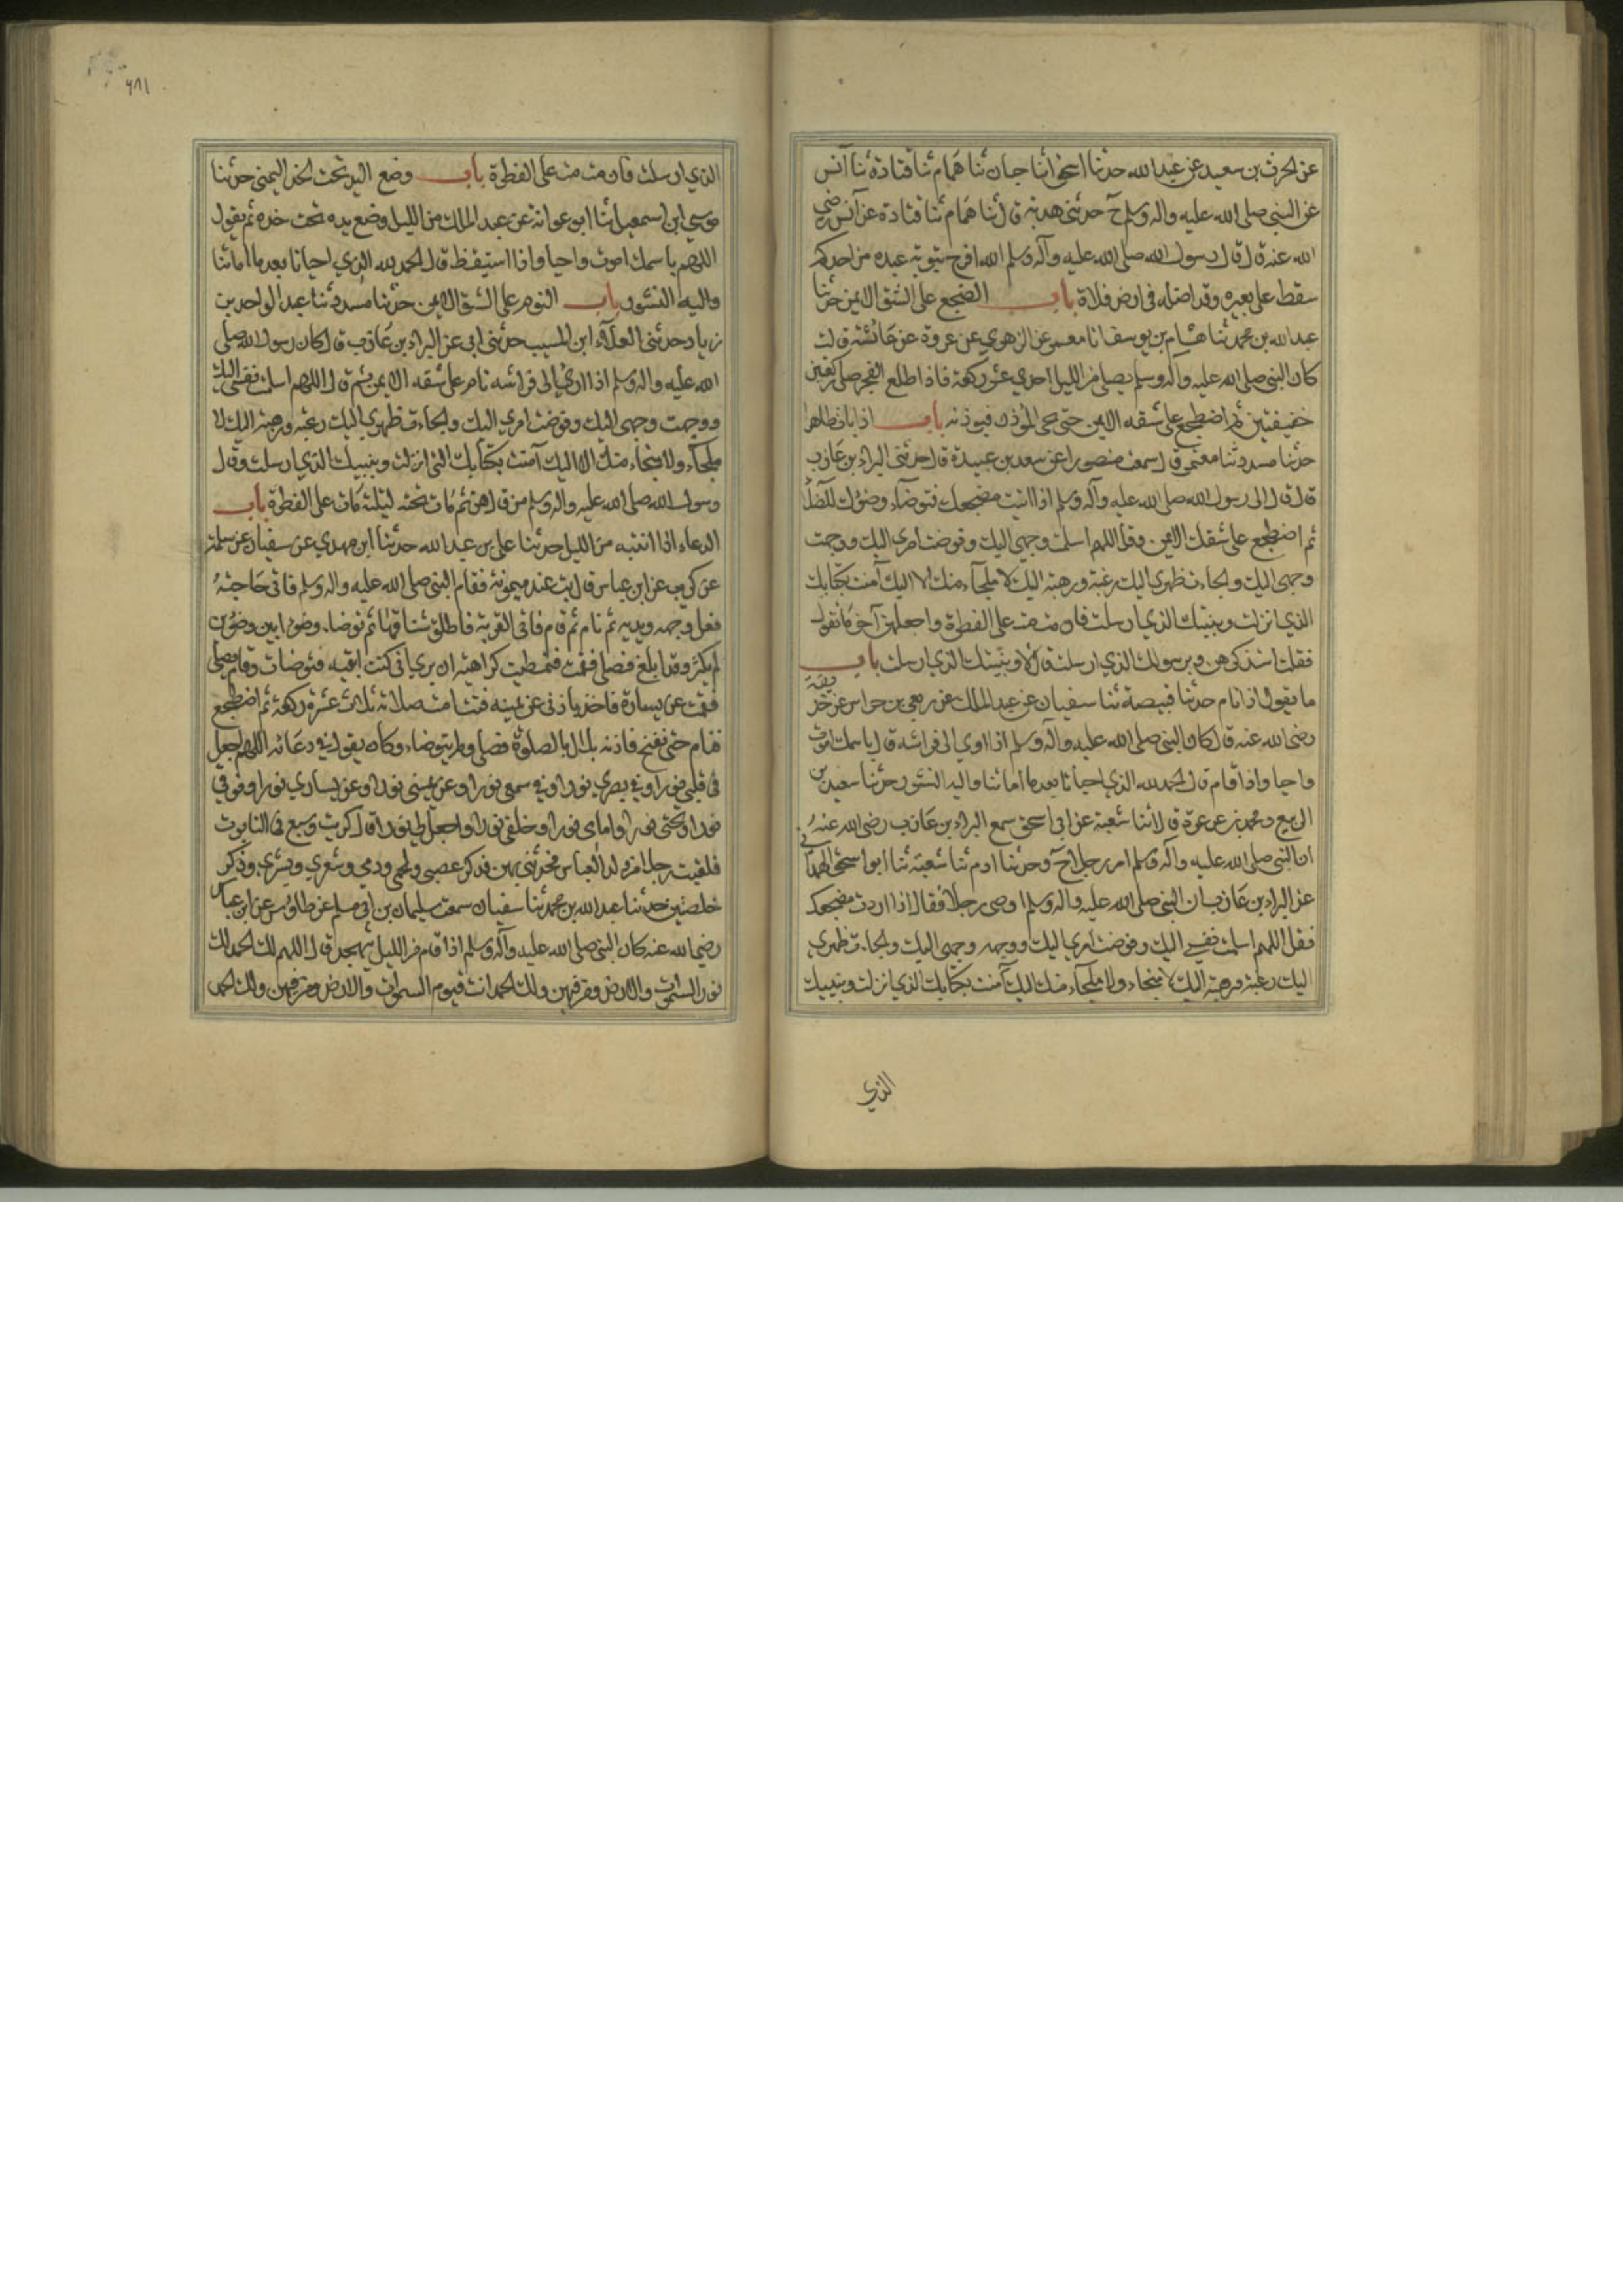 عن الحرث بن سعيد عن عبد الله حدثنا اسحق انا حبان ثنا همام ثنا قتادة ثنا آنس
عن النبي صلى الله عليه واله وسلم ح حدثني هدبه قال ثنا همام ثنا قتادة عن آنس رضي
الله عنه قال قال رسول الله صلى الله عليه وآله وسلم الله افرح بتوبة عبده من احدكم
سقط على بعيره وقد اضله في ارض فلاة باب الضجع على الشق الايمن حدثنا
عبد الله بن محمد ثنا هشام بن يوسف انا معمر عن الزهري عن عروة عن عائشة قالت
كان النبي صلى الله عليه وآله وسلم يصلي من الليل احدي عشر ركعة فاذا طلع الفجر صلى ركعتين
خفيفتين ثم اضطجع على شقه الايمن حتى يجي المؤذن فيوذنه باب اذا بات طاهرا
حدثنا مسدد ثنا معتمر قال سمعت منصورا عن سعد بن عبيدة قال حدثني البراء بن عازب
قال قال لي رسول الله صلى الله عليه وآله وسلم اذا اتيت مضجعك فتوضآء وضوءك للصلوة
ثم اضطجع على شقك الايمن وقل اللهم اسلمت وجهي اليك وفوضت امري اليك ووجهت
وجهي اليك والجاءت ظهري اليك رغبة ورهبة اليك لا ملجآء منك الا اليك آمنت بكتابك
الذي انزلت وبنبيك الذي ارسلت فان مت مت على الفطرة واجعلهن آخر ما تقول
فقلت استذكرهن وبرسولك الذي ارسلت قال لا وبنبيك الذي ارسلت باب
ما يقول اذا نام حدثنا قبيصة ثنا سفيان عن عبد الملك عن ربعي بن حراش عن حذيفة
رضي الله عنه قال كان النبي صلى الله عليه وآله وسلم اذا اوي الى فراشه قال باسمك اموت
واحيا واذا قام قال الحمد لله الذي احيانا بعد ما اماتنا واليه النشور حدثنا سعيد بن
الربيع ومحمد بن عرعرة قالا ثنا شعبة عن ابي اسحق سمع البراء بن عازب رضي الله عنه
ان النبي صلى الله عليه وآله وسلم امر رجلا ح وحدثنا ادم ثنا شعبة ثنا ابو اسحق الهمداني
عن البراء بن عازب ان النبي صلى الله عليه واله وسلم اوصى رجلا فقال اذا اردت مضجعك
فقل اللهم اسلمت نفسي اليك وفوضت امري اليك ووجهت وجهي اليك والجاءت ظهري
اليك رغبة ورهبة اليك لا منجاء ولا ملجآء منك اليك آمنت بكتابك الذي انزلت وبنبيك
الذي
٦٨١
الذي ارسلت فان مت مت على الفطرة باب وضع اليد تحت الخد اليمنى حدثنا
موسي ابن اسمعيل ثنا ابو عوانة عن عبد الملك من الليل وضع يده تحت خده ثم يقول
اللهم باسمك اموت واحيا واذا استيقظ قال الحمد لله الذي احيانا بعد ما اماتنا
واليه النشور باب النوم على الشق الايمن حدثنا مسدد ثنا عبد الواحد بن
زياد حدثني العلآء ابن المسيب حدثني ابي عن البراء بن عازب قال كان رسول الله صلى
الله عليه واله وسلم اذا اوي الى فراشه نام على شقه الايمن ثم قال اللهم اسلمت نفسي اليك
ووجهت وجهي اليك وفوضت امري اليك والجاءت ظهري اليك رغبة ورهبة اليك لا
ملجآء ولا منجاء منك الا اليك آمنت بكتابك الذي انزلت وبنبيك الذي ارسلت وقال
رسول الله صلى الله عليه واله وسلم من قالهن ثم مات تحت ليلته مات على الفطرة باب
الدعاء اذا انتبه من الليل حدثنا علي بن عبد الله حدثنا ابن مهدي عن سفيان عن سلمة
عن كريب عن ابن عباس قال بت عند ميمونة فقام النبي صلى الله عليه واله وسلم فاتى حاجته
فغسل وجهه ويديه ثم نام ثم قام فاتى القربة فاطلق شناقها ثم توضا وضوا بين وضوين
لم يكثر وقد ابلغ فصلى فقمت فتمطيت كراهية ان يري اني كنت اتقيه فتوضات وقام يصلي
فقمت عن يساره فاخذ باذني عن يمينه فتتامت صلاته ثلاث عشرة ركعة ثم اضطجع
فنام حتى نفخ فاذنه بلال بالصلوة فصلى ولم يتوضاء وكان يقول في دعائه اللهم اجعل
في قلبي نورا وفي بصري نورا وفي سمعي نورا وعن يميني نورا وعن يساري نورا وفوقي
نورا وتحتي نورا وامامي نورا وخلفي نورا واجعل لي نورا قال كريب وسبع في التابوت
فلقيت رجلا من ولد العباس فحدثني بهن فذكر عصبي ولحمي ودمي وشعري وبشري وذكر
خصلتين حدثنا عبد الله بن محمد ثنا سفيان سمعت سليمان بن ابي مسلم عن طاوس عن ابن عباس
رضي الله عنه كان النبي صلى الله عليه وآله وسلم اذا قام من الليل يتهجد قال اللهم لك الحمد لك
نور السموات والارض ومن فيهن ولك الحمد انت قيوم السموات والارض ومن فيهن ولك الحمد